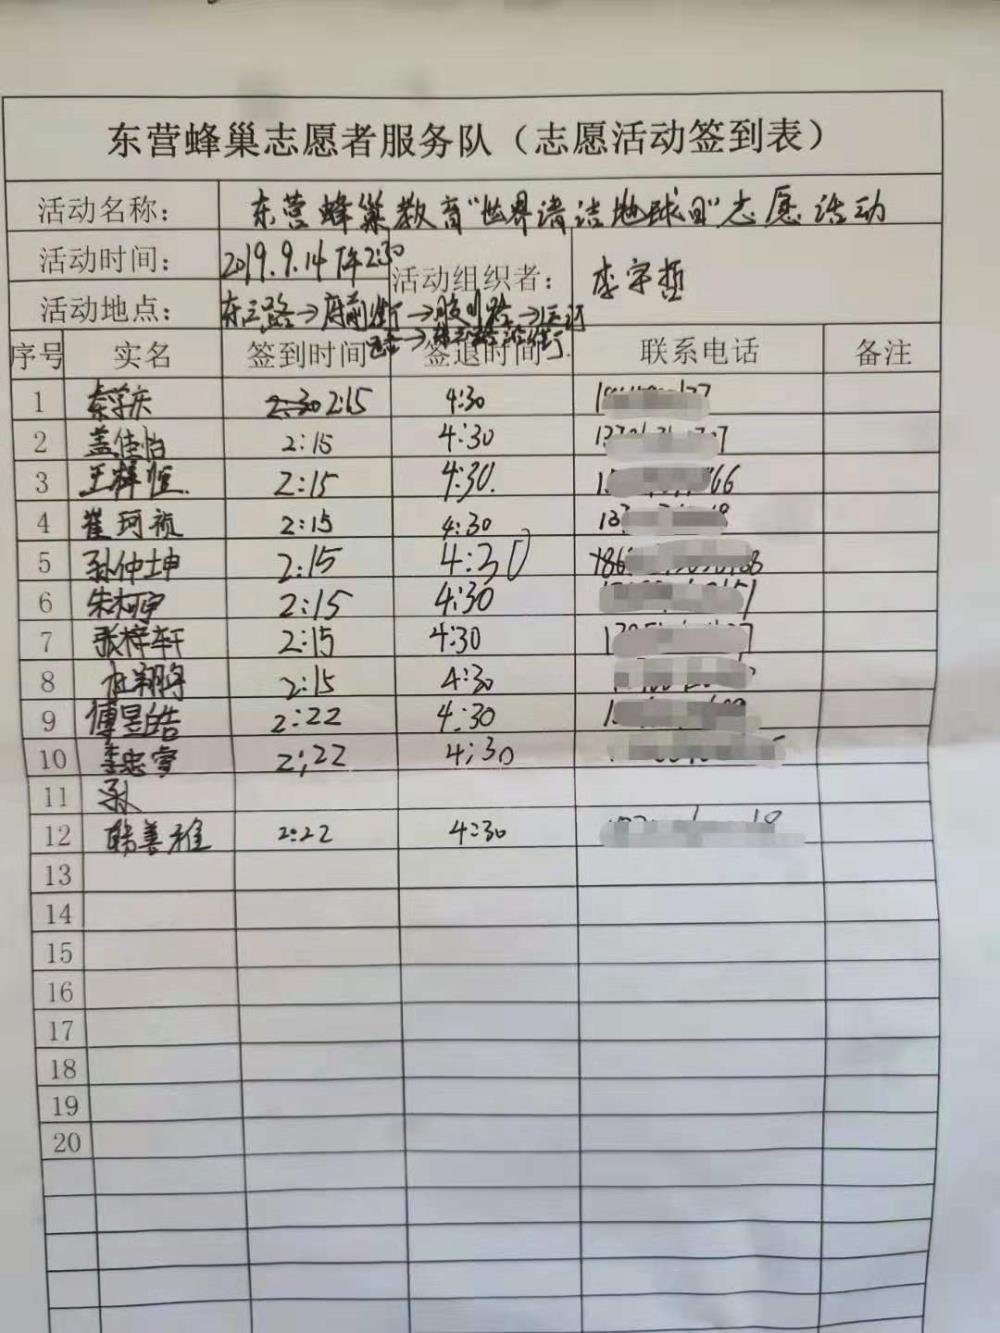 东营蜂巢志愿者服务队（志愿活动签到表）
活动名称： 东营蜂巢教育"世界清洁地球日"志愿活动
活动时间： 2019.9.14 下午2:30 活动组织者： 李宇哲
活动地点： 东三路→府前街→胶州路→运河
序号 实名 签到时间 签退时间 联系电话 备注
1 秦学庆 2:30 2:15 4:30
2 盖佳怡 2:15 4:30
3 王梓恒 2:15 4:30.
4 崔珂祯 2:15 4:30
5 孙仲坤 2:15 4:30
6 朱柯宇 2:15 4:30
7 张梓轩 2:15 4:30
8 2:15 4:30
9 傅昱皓 2:22 4:30
10 2:22 4:30
11 孙
12 韩善雅 2:22 4:30
13
14
15
16
17
18
19
20